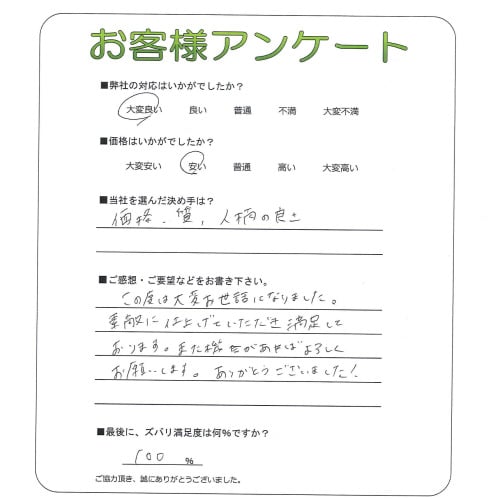 お客様アンケート
■弊社の対応はいかがでしたか?
大変良い 良い 普通 不満 大変不満
■価格はいかがでしたか?
大変安い 安い 普通 高い 大変高い
■当社を選んだ決め手は?
価格、質、人柄の良さ
■ご感想・ご要望などをお書き下さい。
この度は大変お世話になりました。
素敵に仕上げていただき満足して
おります。また機会があればよろしく
お願いします。ありがとうございました!
■最後に、ズバリ満足度は何%ですか?
100 %
ご協力頂き、誠にありがとうございました。